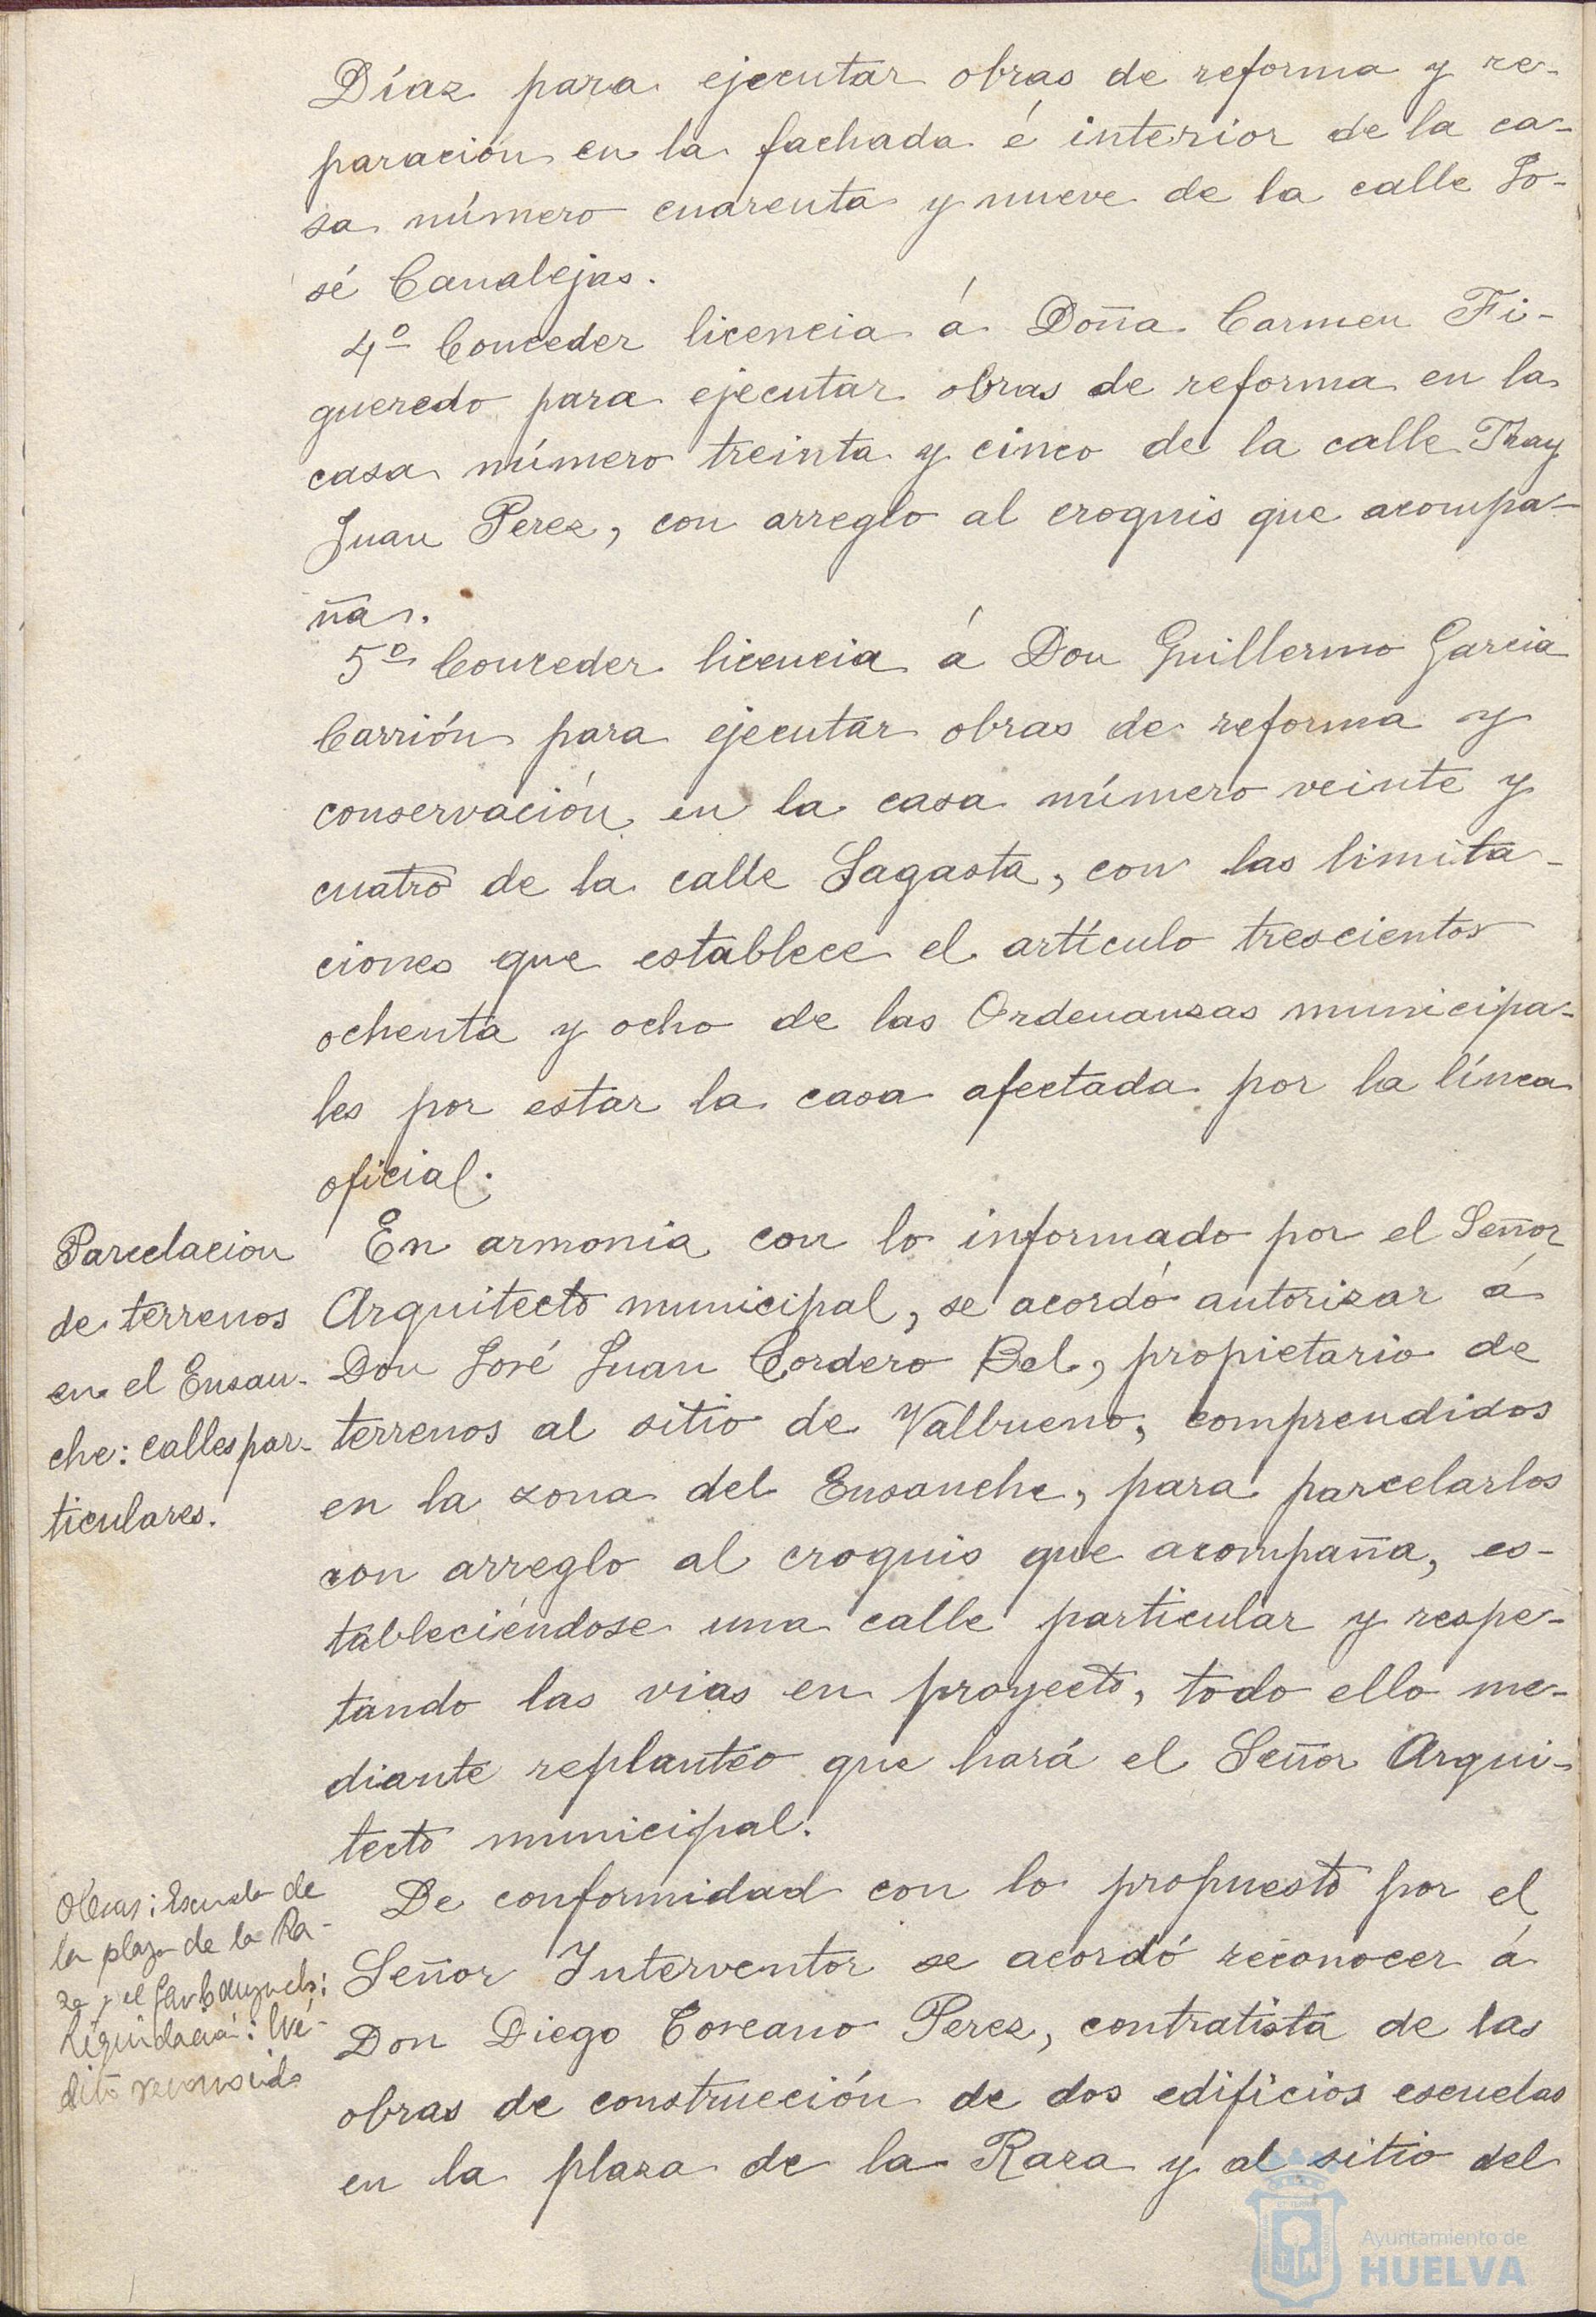 Díaz para ejecutar obras de reforma y re-
paración en la fachada é interior de la ca-
sa número cuarenta y nueve de la calle Jo-
sé Canalejas.
4º Conceder licencia á Doña Carmen Fi-
gueredo para ejecutar obras de reforma en la
casa número treinta y cinco de la calle Fray
Juan Perez, con arreglo al croquis que acompa-
ña.
5º Conceder licencia á Don Guillermo Garcia
Carrión para ejecutar obras de reforma y
conservación en la casa número veinte y
cuatro de la calle Sagasta, con las limita-
ciones que establece el artículo trescientos
ochenta y ocho de las Ordenanzas municipa-
les por estar la casa afectada por la línea
oficial.
Parcelacion
de terrenos
en el Ensan-
che: calles par-
ticulares.
En armonia con lo informado por el Señor
Arquitecto municipal, se acordó autorizar á
Don José Juan Cordero Bel, propietario de
terrenos al sitio de Valbueno, comprendidos
en la zona del Ensanche, para parcelarlos
con arreglo al croquis que acompaña, es-
tableciéndose una calle particular y respe-
tando las vias en proyecto, todo ello me-
diante replanteo que hará el Señor Arqui-
tecto municipal.
Obras: Escuela de
la plaza de la Ra-
za y el
liquidación: Cré-
dito reconocido
De conformidad con lo propuesto por el
Señor Interventor se acordó reconocer á
Don Diego Toscano Perez, contratista de las
obras de construcción de dos edificios escuelas
en la plaza de la Raza y al sitio del
Ayuntamiento de
HUELVA